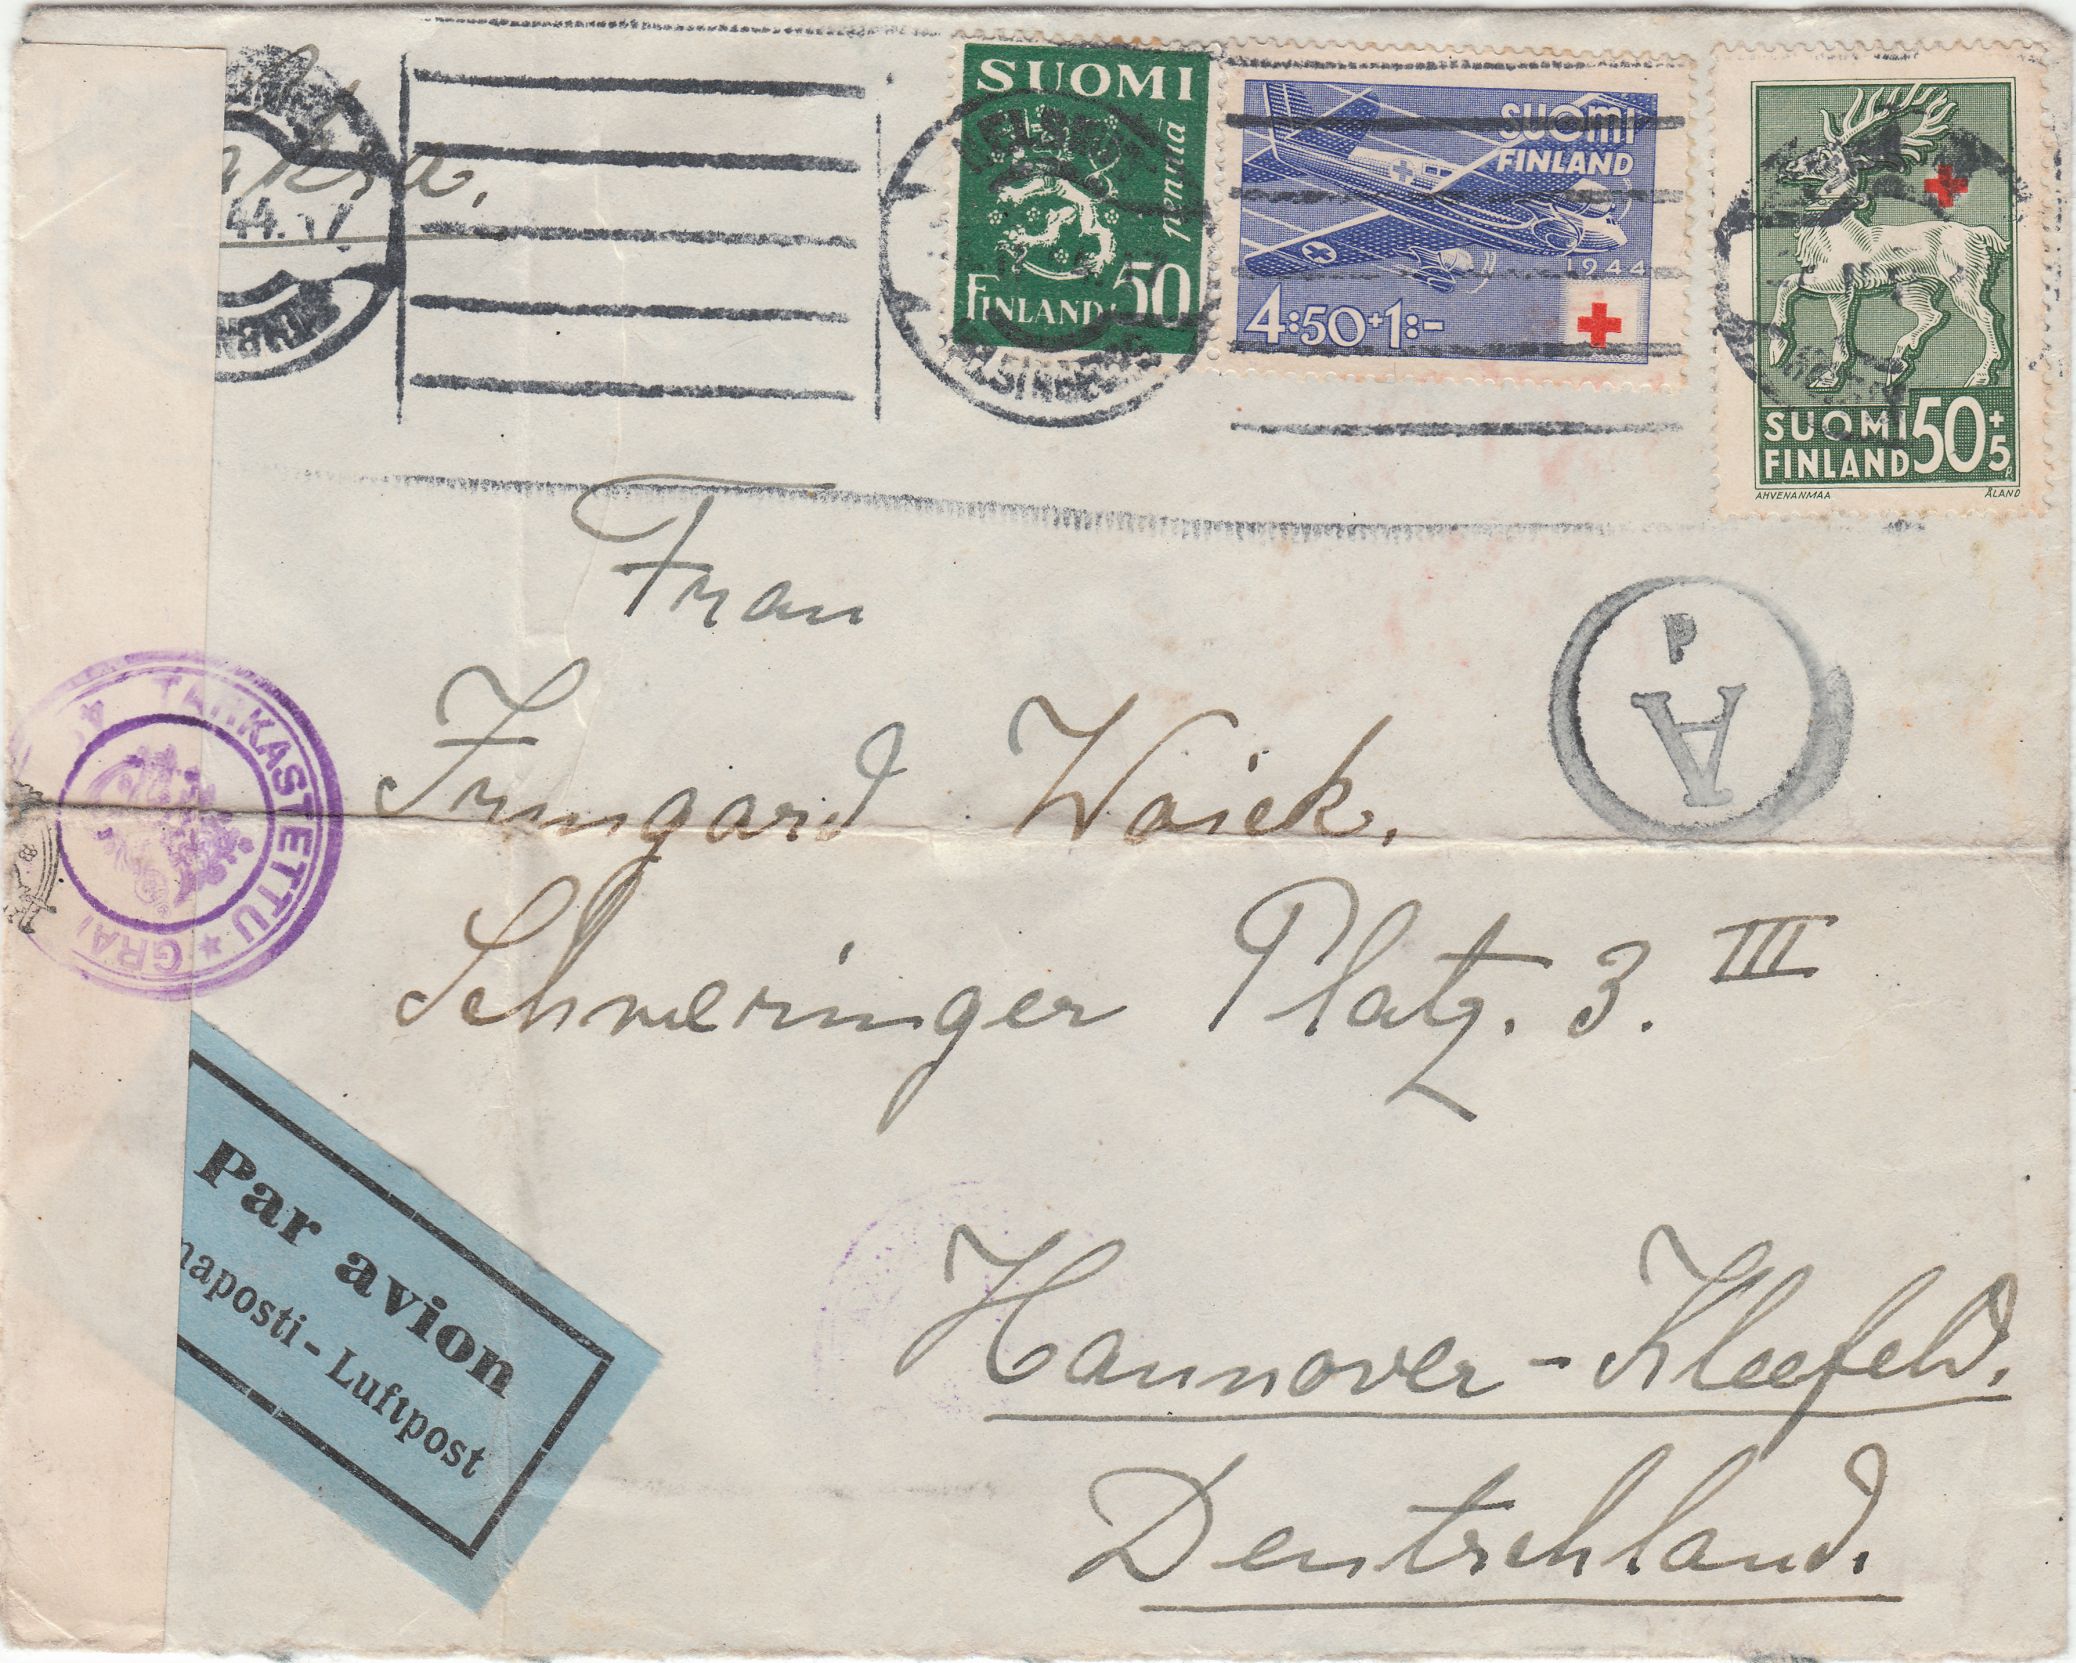 44.
SUOMI
pennia
FINLAND 50
HELSINKI
SUOMI
FINLAND
1944
4:50+1:-
SUOMI
FINLAND 50+5
AHVENANMAA ÅLAND
Frau
Irmgard Woick.
Schweringer Platz. 3. III
P
A
TARKASTETTU
Hannover-Kleefeld.
Deutschland.
Par avion
naposti - Luftpost